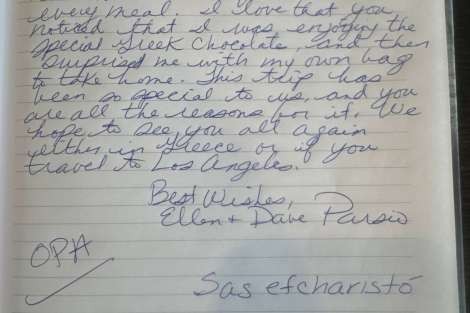 every meal. I love that you
noticed that I was enjoying the
special Greek Chocolate, and then
surprised me with my own bag
to take home. This trip has
been so special to us, and you
are all the reasons for it. We
hope to see you all again
either in Greece or if you
travel to Los Angeles.
Best Wishes,
Ellen + Dave
OPA
Sas efcharistó